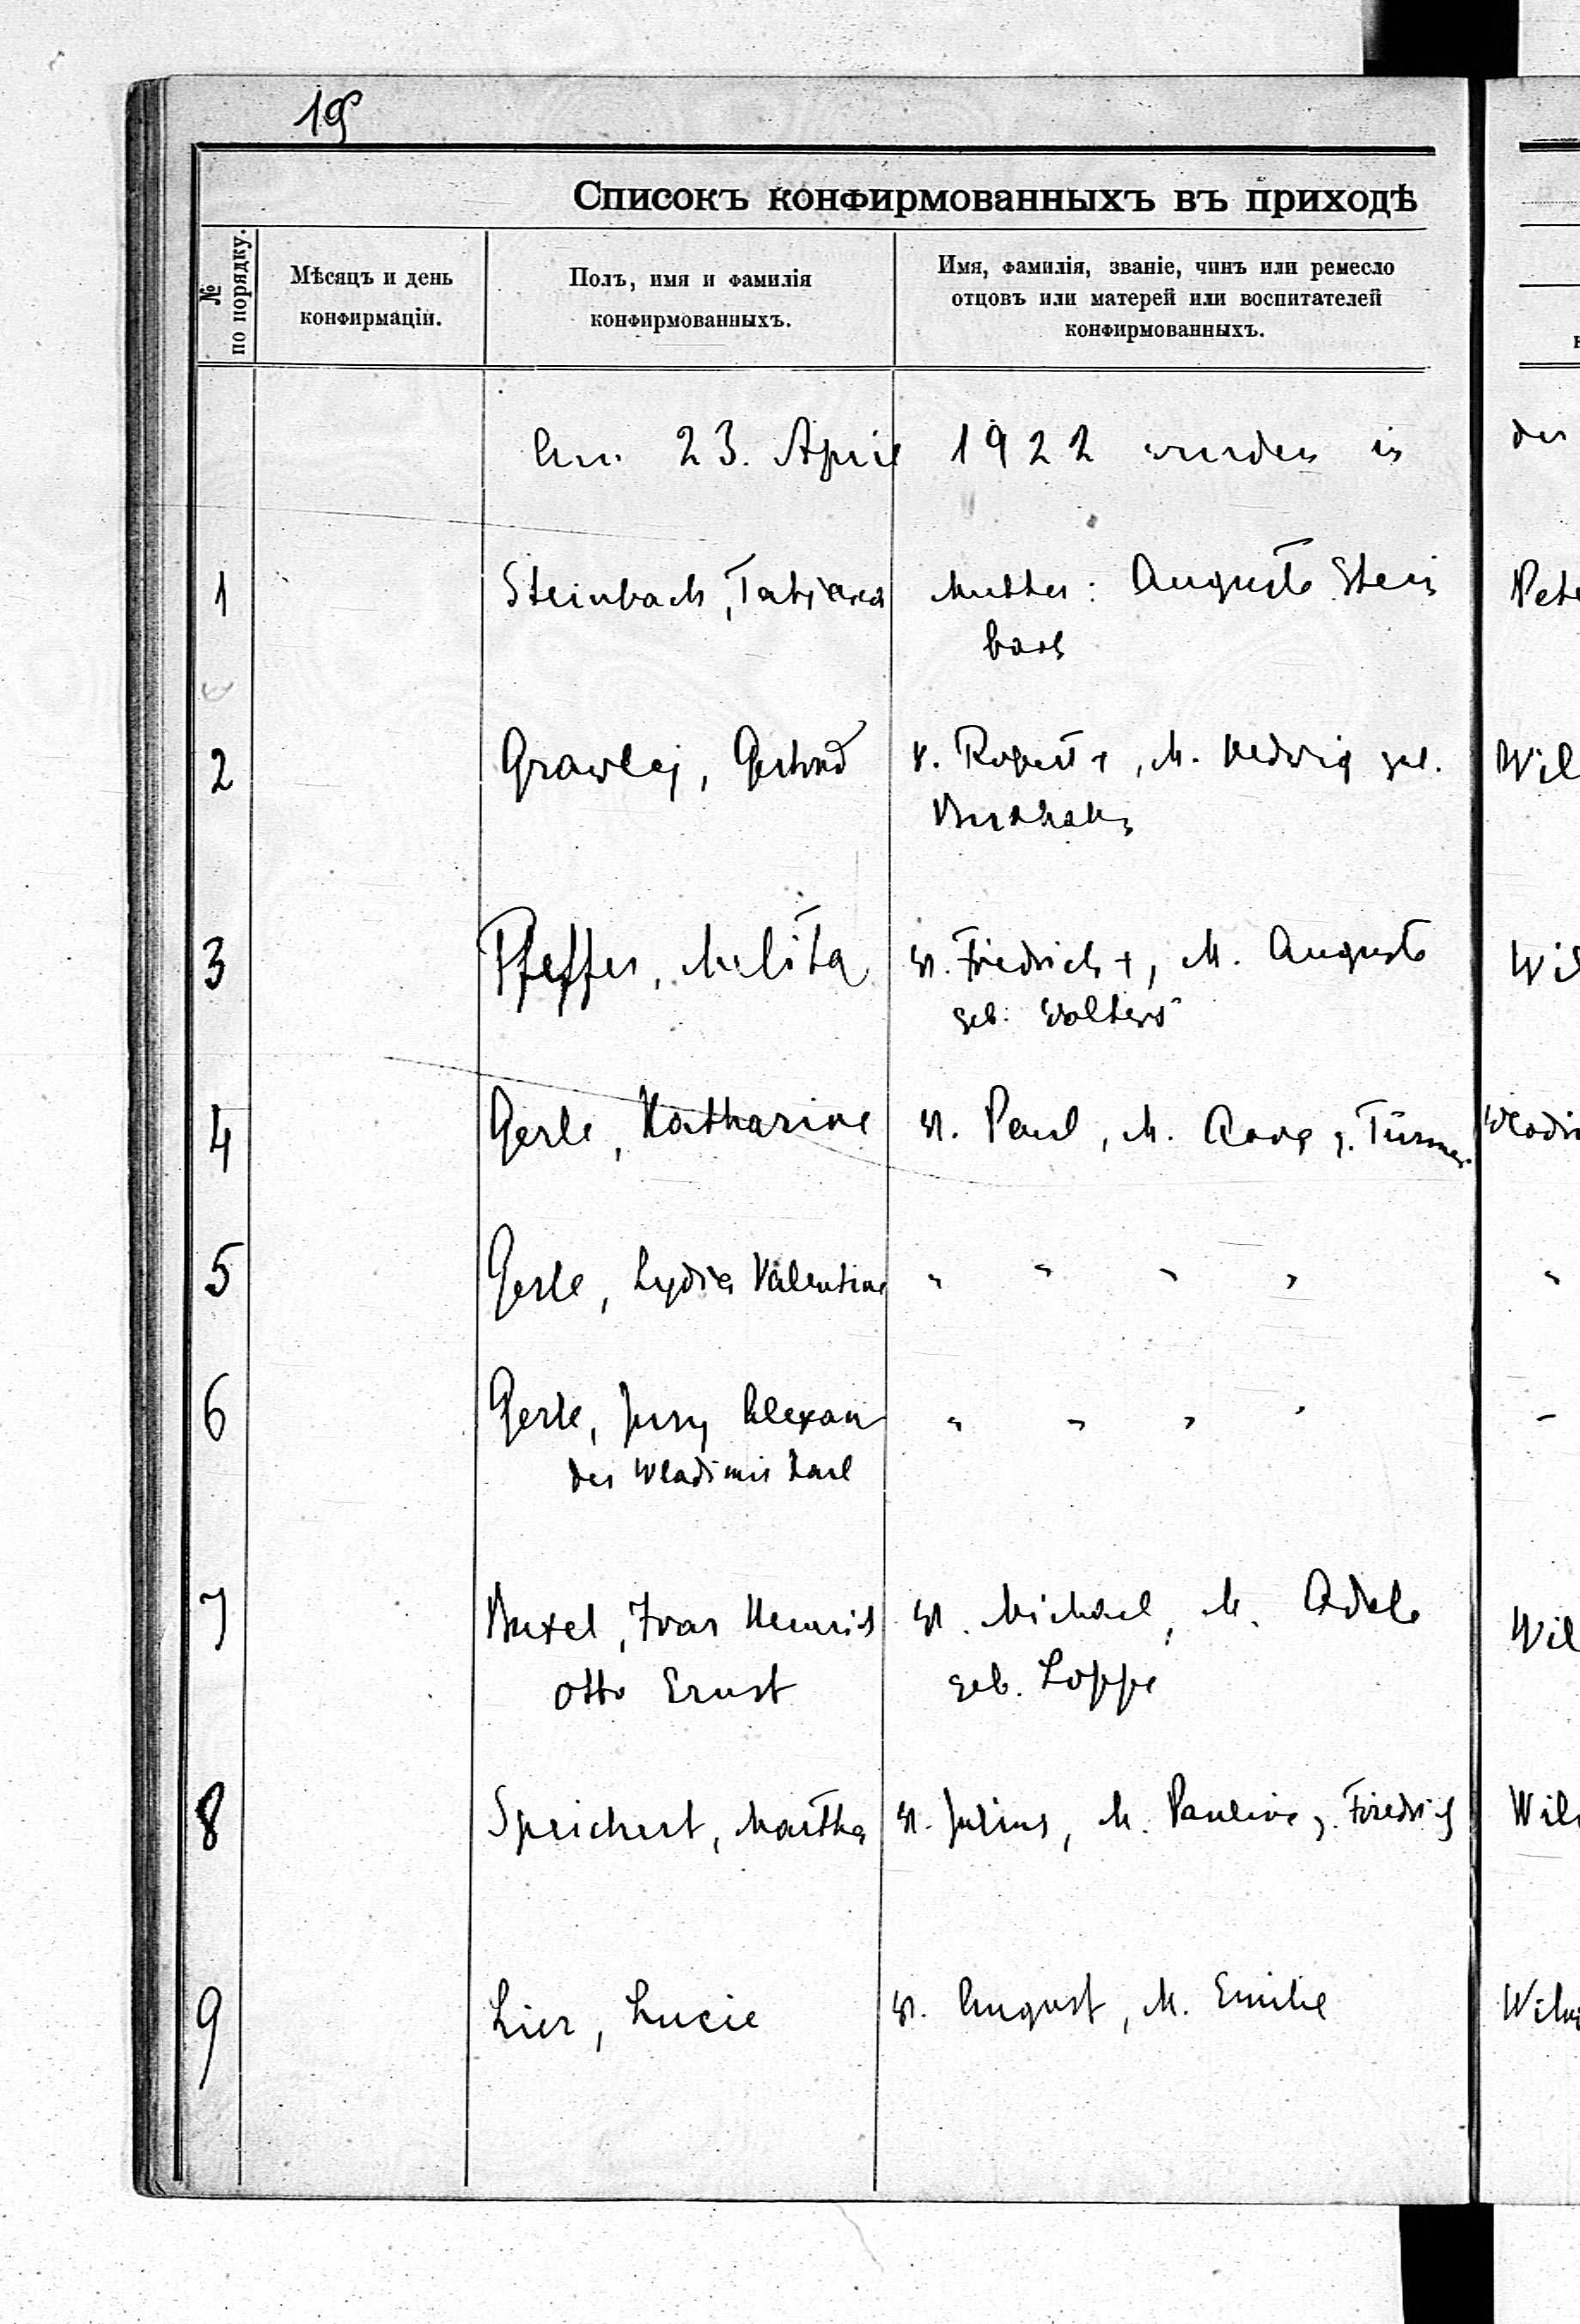 19
Списокъ конфирмованныхъ въ приходѣ
№ по порядку.
Мѣсяцъ и день
конфирмаціи.
Полъ, имя и фамилія
конфирмованныхъ.
Имя, фамилія, званіе, чинъ или ремесло
отцовъ или матерей или воспитателей
конфирмованныхъ.
Am 23. April 1922 wurden in der
1 Steinbach, Tatjana Mutter: Auguste Stein
bach
2 Gertrud V. Robert +, M. Hedwig geb. Wil
3 Pfeffer, Melita V. Friedrich +, M. Auguste Wil
geb. Wolters
4 Gerle, Katharine V. Paul, M. Anna g. Türmer Wladi
5 Gerle, Lydia Valentine " " " " "
6 Gerle, Jury Alexan " " " " "
der Wladimir Karl
7 Buxel, Ivar Heinrich V. Michael, M. Adele Wil
Otto Ernst geb. Loppe
8 Speichert, Martha V. Julius, M. Pauline g. Friedrich Wil
9 Lier, Lucie V. August, M. Emilie Wiln